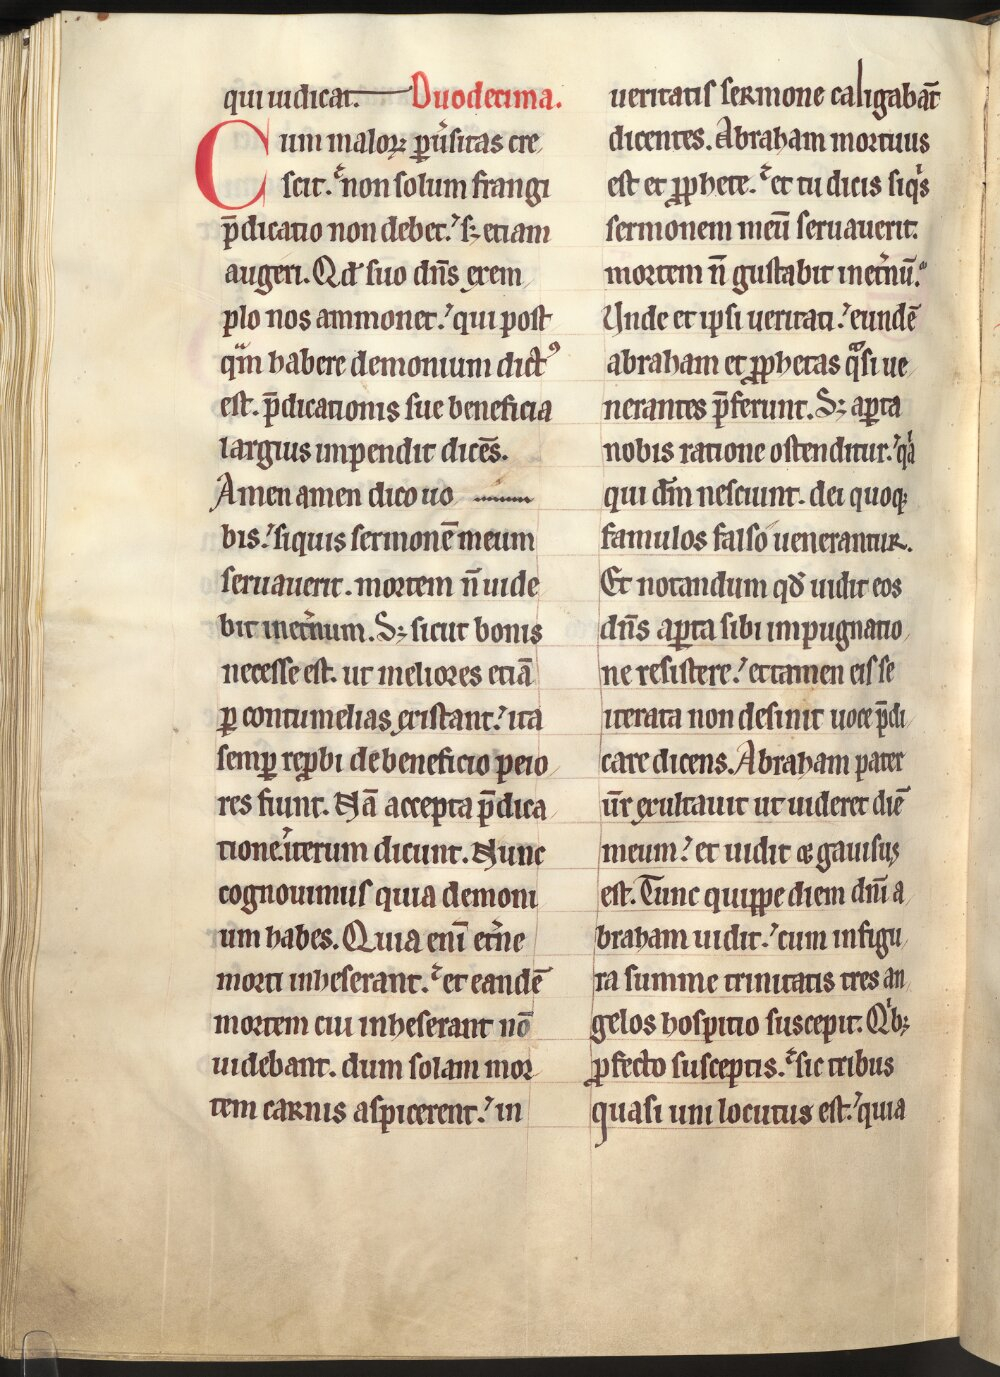 qui iudicat. Duodecima.
Cum maloꝝ ꝑuͥsitas cre
scit. non solum frangi
p̄dicatio non debet. sꝫ etiam
augeri. Qd̕ suo dn̄s exem
plo nos ammonet. qui post
qͣm habere demonium dictꝰ
est. p̄dicationis sue beneficia
largius impendit dicēs.
Amen amen dico uo
bis. siquis sermonē meum
seruauerit. mortem n̄ uide
bit inet̕num. Sꝫ sicut bonis
necesse est. ut meliores etiā
ꝑ contumelias existant. ita
semꝑ reꝓbi de beneficio peio
res fiunt. Nā accepta p̄dica
tione iterum dicunt. Nunc
cognouimus quia demoni
um habes. Quia eni̅ et̕ne
morti inheserant. et eandē
mortem cui inheserant nō
uidebant. dum solam mor
tem carnis aspicerent. in
ueritatis sermone caligabāt
dicentes. Abraham mortuus
est et ꝓphete. et tu dicis siqͥs
sermonem meū seruauerit.
mortem n̄ gustabit inet̕nū.
Unde et ipsi ueritati. eundē
abraham et ꝓphetas qͣsi ue
nerantes p̄ferunt. Sꝫ aꝑta
nobis ratione ostenditur. qͥa
qui dm̄ nesciunt. dei quoqꝫ
famulos falso uenerantur.
Et notandum qd̕ uidit eos
dn̄s aꝑta sibi impugnatio
ne resistere. et tamen eis se
iterata non desinit uoce p̄di
care dicens. Abraham pater
ur̄ exultauit ut uideret diē
meum. et uidit & gauisus
est. Tunc quippe diem dn̄i a
braham uidit. cum in figu
ra summe trinitatis tres an
gelos hospitio suscepit. Qͥbꝫ
ꝓfecto susceptis. sic tribus
quasi uni locutus est. quia